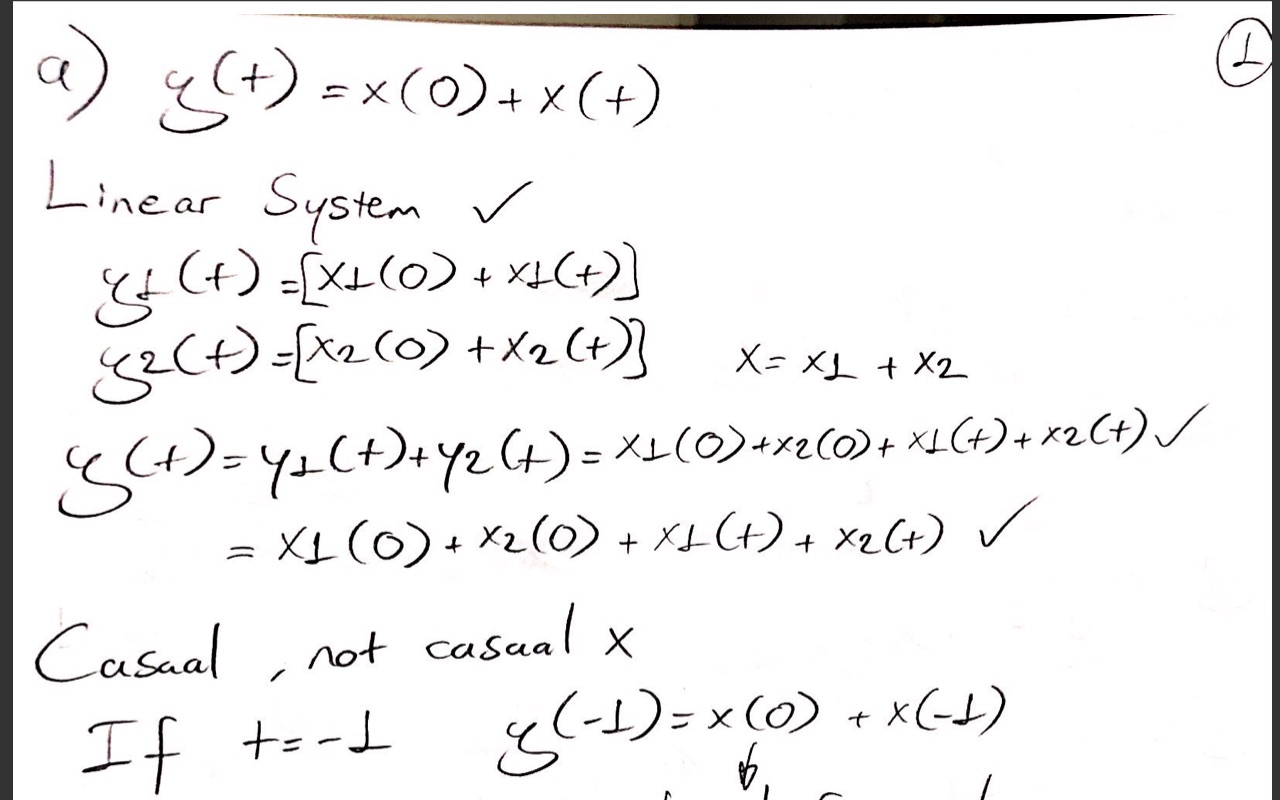 a) y(t) = x(0) + x(t)
1
Linear System ✓
y1(t) = [x1(0) + x1(t)]
y2(t) = [x2(0) + x2(t)] x = x1 + x2
y(t) = y1(t) + y2(t) = x1(0) + x2(0) + x1(t) + x2(t) ✓
= x1(0) + x2(0) + x1(t) + x2(t) ✓
Casual , not casual x
If t = -1 y(-1) = x(0) + x(-1)